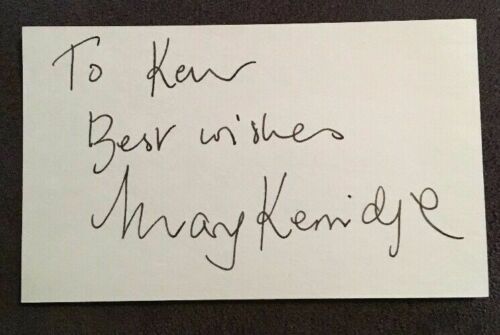 To Ken
Best wishes
Mary Kerridge